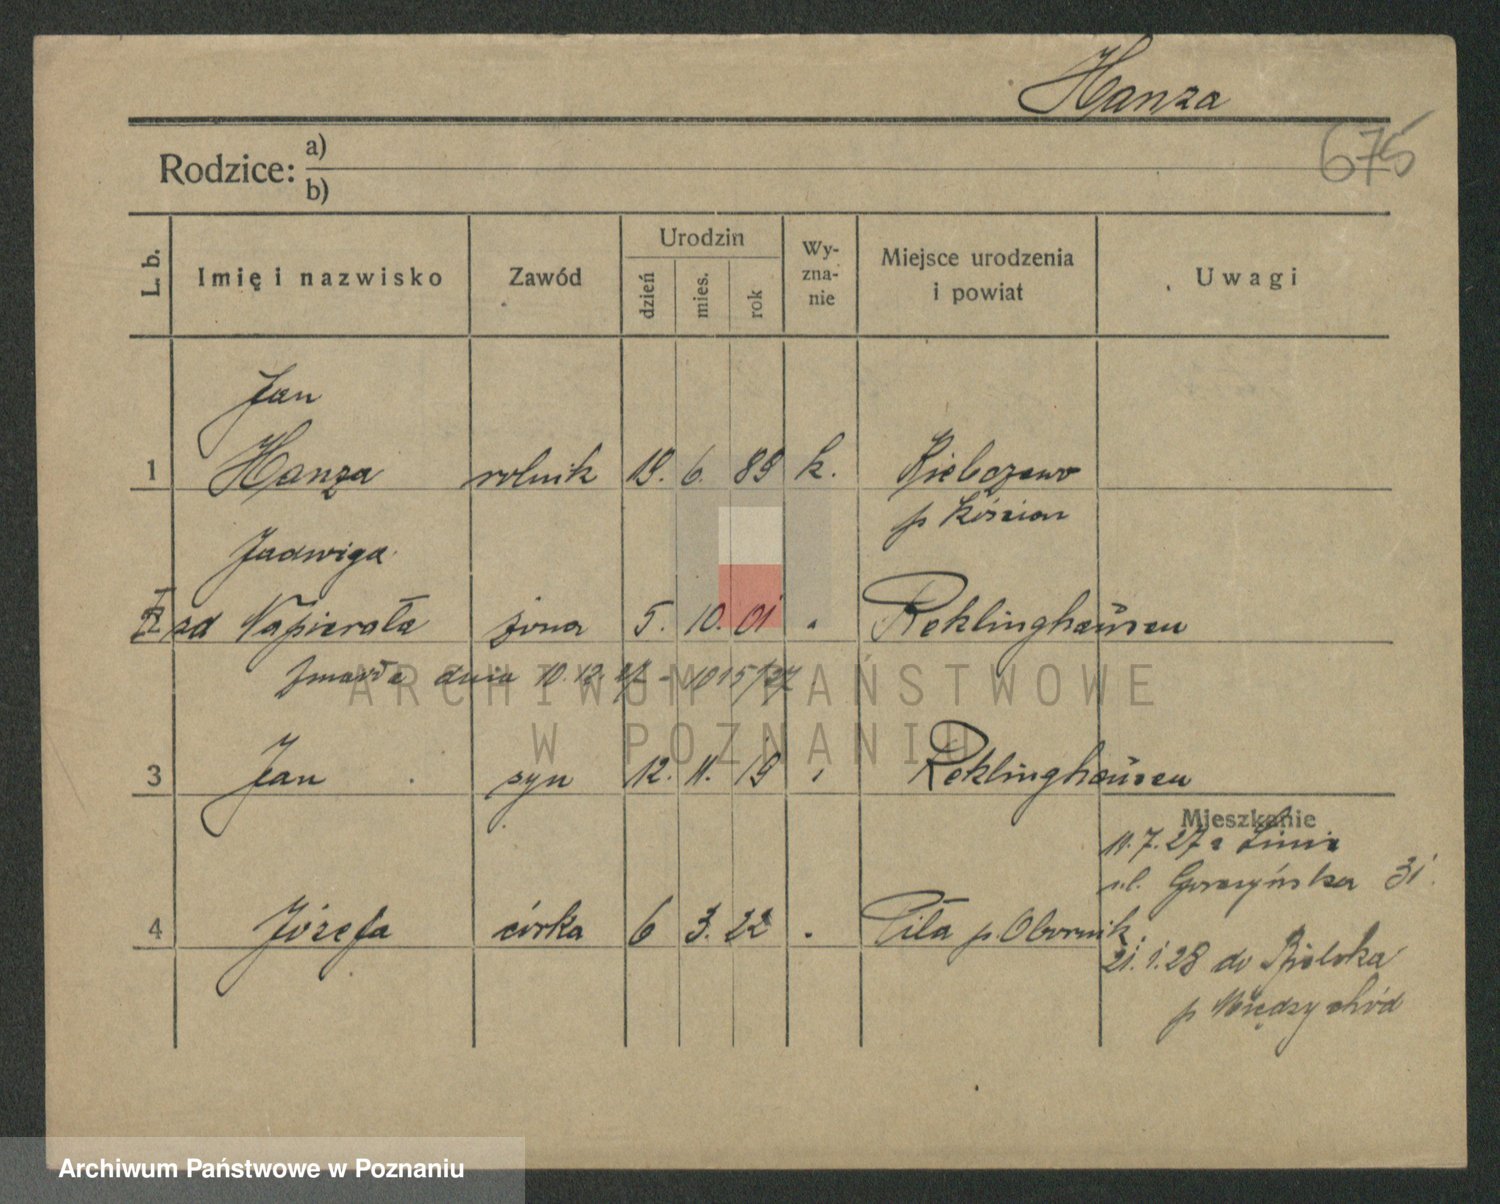 Hanza
675
Rodzice: a)
b)
L. b. Imię i nazwisko Zawód Urodzin dzień mies. rok Wy-zna-nie Miejsce urodzenia i powiat Uwagi
Jan
1 Hanza rolnik 19. 6. 89 k. Bielczewo
p Kościan
Jadwiga
zd Napierała żona 5. 10. 01 " Reklinghausen
zmarła dnia 10.12.27 - 1015/27
3 Jan syn 12. 11. 19 " Reklinghausen
Mieszkanie
11.7.27 z
ul. Gorczyńska 31.
4 Józefa córka 6 3. 22 " Piła p. Obornik
21.1.28 do Bielska
p Międzychód
ARCHIWUM PAŃSTWOWE
W POZNANIU
Archiwum Państwowe w Poznaniu